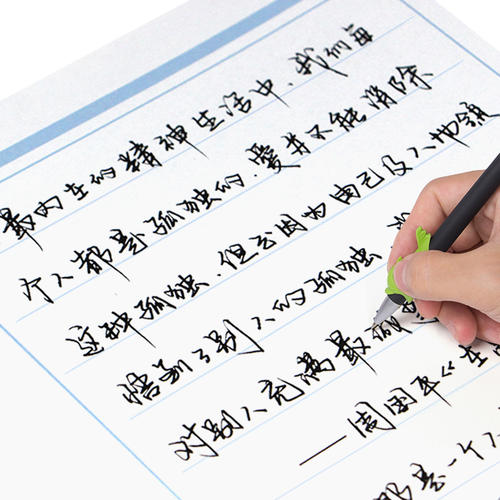 最内在的精神生活中，我们每
个人都是孤独的，爱并不能消除
这种孤独，但正因为由己及人地领
悟到了别人的孤独，
对别人充满最诚
——周国平《在
是一个人